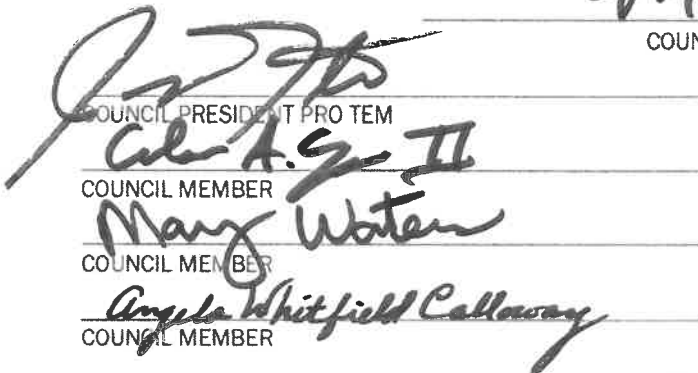 COUN
COUNCIL PRESIDENT PRO TEM
A. II
COUNCIL MEMBER
Mary Waters
COUNCIL MEMBER
Angela Whitfield Calloway
COUNCIL MEMBER